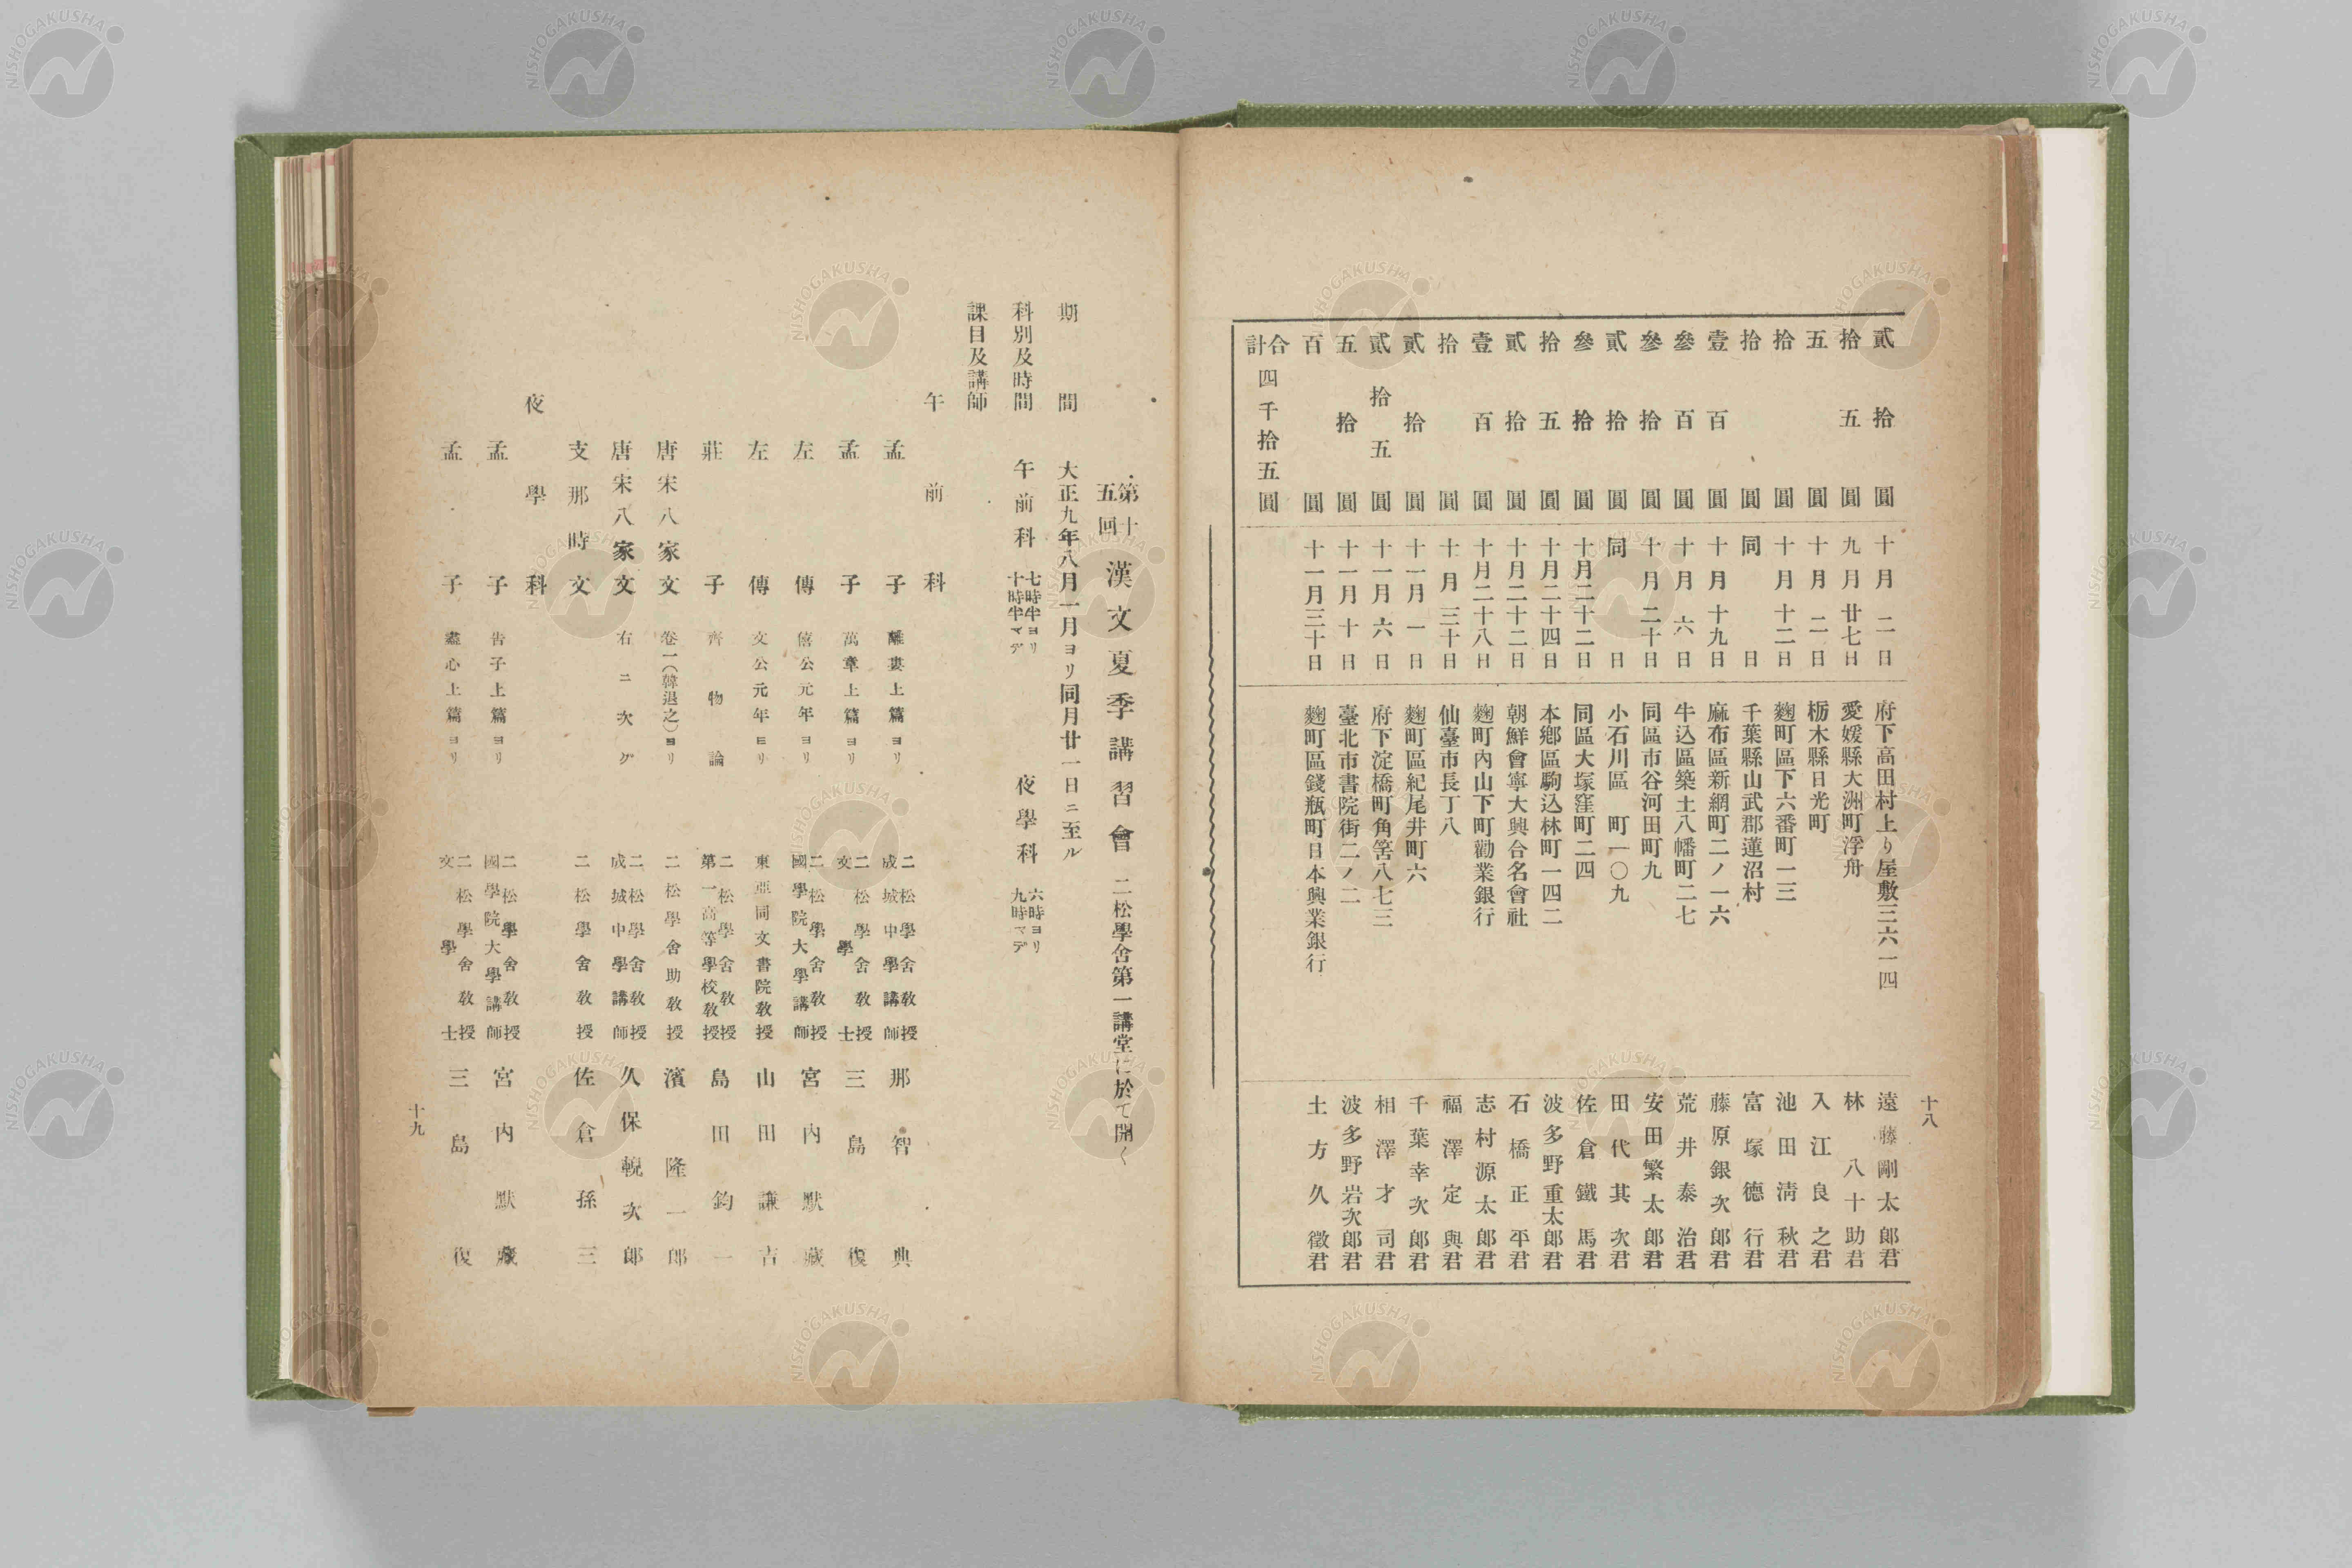 十八
貳拾圓 十月二日 府下高田村上り屋敷三六一四 遠藤剛太郎君
拾五圓 九月廿七日 愛媛縣大洲町浮舟 林八十助君
五圓 十月二日 栃木縣日光町 入江良之君
拾圓 十月十二日 麴町區下六番町一三 池田淸秋君
拾圓 同日 千葉縣山武郡蓮沼村 富塚德行君
壹百圓 十月十九日 麻布區新網町二ノ一六 藤原銀次郎君
參百圓 十月六日 牛込區築土八幡町二七 荒井泰治君
參拾圓 十月二十日 同區市谷河田町九 安田繁太郎君
貳拾圓 同日 小石川區 町一〇九 田代其次君
參拾圓 十月二十二日 同區大塚窪町二四 佐倉鐵馬君
拾五圓 十月二十四日 本鄕區駒込林町一四二 波多野重太郎君
貳拾圓 十月二十二日 朝鮮會寧大興合名會社 石橋正平君
壹百圓 十月二十八日 麴町內山下町勸業銀行 志村源太郎君
拾圓 十月三十日 仙臺市長丁八 福澤定與君
貳拾圓 十一月一日 麴町區紀尾井町六 千葉幸次郎君
貳拾五圓 十一月六日 府下淀橋町角筈八七三 相澤才司君
五拾圓 十一月十日 臺北市書院街二ノ二 波多野岩次郎君
百圓 十一月三十日 麴町區錢瓶町日本興業銀行 土方久徵君
合計 四千拾五圓
第十五回 漢文夏季講習會 二松學舍第一講堂に於て開く
期間 大正九年八月一月ヨリ同月廿一日ニ至ル
科別及時間 午前科 七時半ヨリ十時半マデ 夜學科 六時ヨリ九時マデ
課目及講師
午前科
孟子 離婁上篇ヨリ 二松學舍教授 成城中學講師 那智典
孟子 萬章上篇ヨリ 二松學舍教授 文學士 三島復
左傳 僖公元年ヨリ 二松學舍教授 國學院大學講師 宮內默藏
左傳 文公元年ヨリ 東亞同文書院教授 山田謙吉
莊子 齊物論 二松學舍教授 第一高等學校教授 島田鈞一
唐宋八家文 卷一(韓退之)ヨリ 二松學舍助教授 濱隆一郎
唐宋八家文 右ニ次グ 二松學舍教授 成城中學講師 久保輗次郎
支那時文 二松學舍教授 佐倉孫三
夜學科
孟子 告子上篇ヨリ 二松學舍教授 國學院大學講師 宮內默藏
孟子 盡心上篇ヨリ 二松學舍教授 文學士 三島復
十九
NISHOGAKUSHA